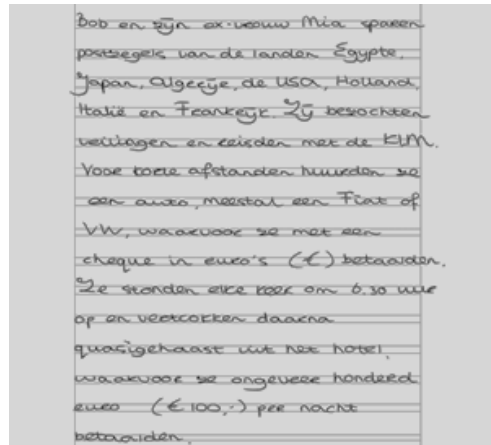 Bob en zijn ex-vrouw Mia sparen
postzegels van de landen Egypte,
Japan, Algerije, de USA, Holland,
Italië en Frankrijk. Zij bezochten
veilingen en reisden met de KLM.
Voor korte afstanden huurden ze
een auto, meestal een Fiat of
VW, waarvoor ze met een
cheque in euro's (€) betaalden.
Ze stonden elke keer om 6.30 uur
op en vertrokken daarna
quasigehaast uit het hotel,
waarvoor ze ongeveer honderd
euro (€ 100,-) per nacht
betaalden.